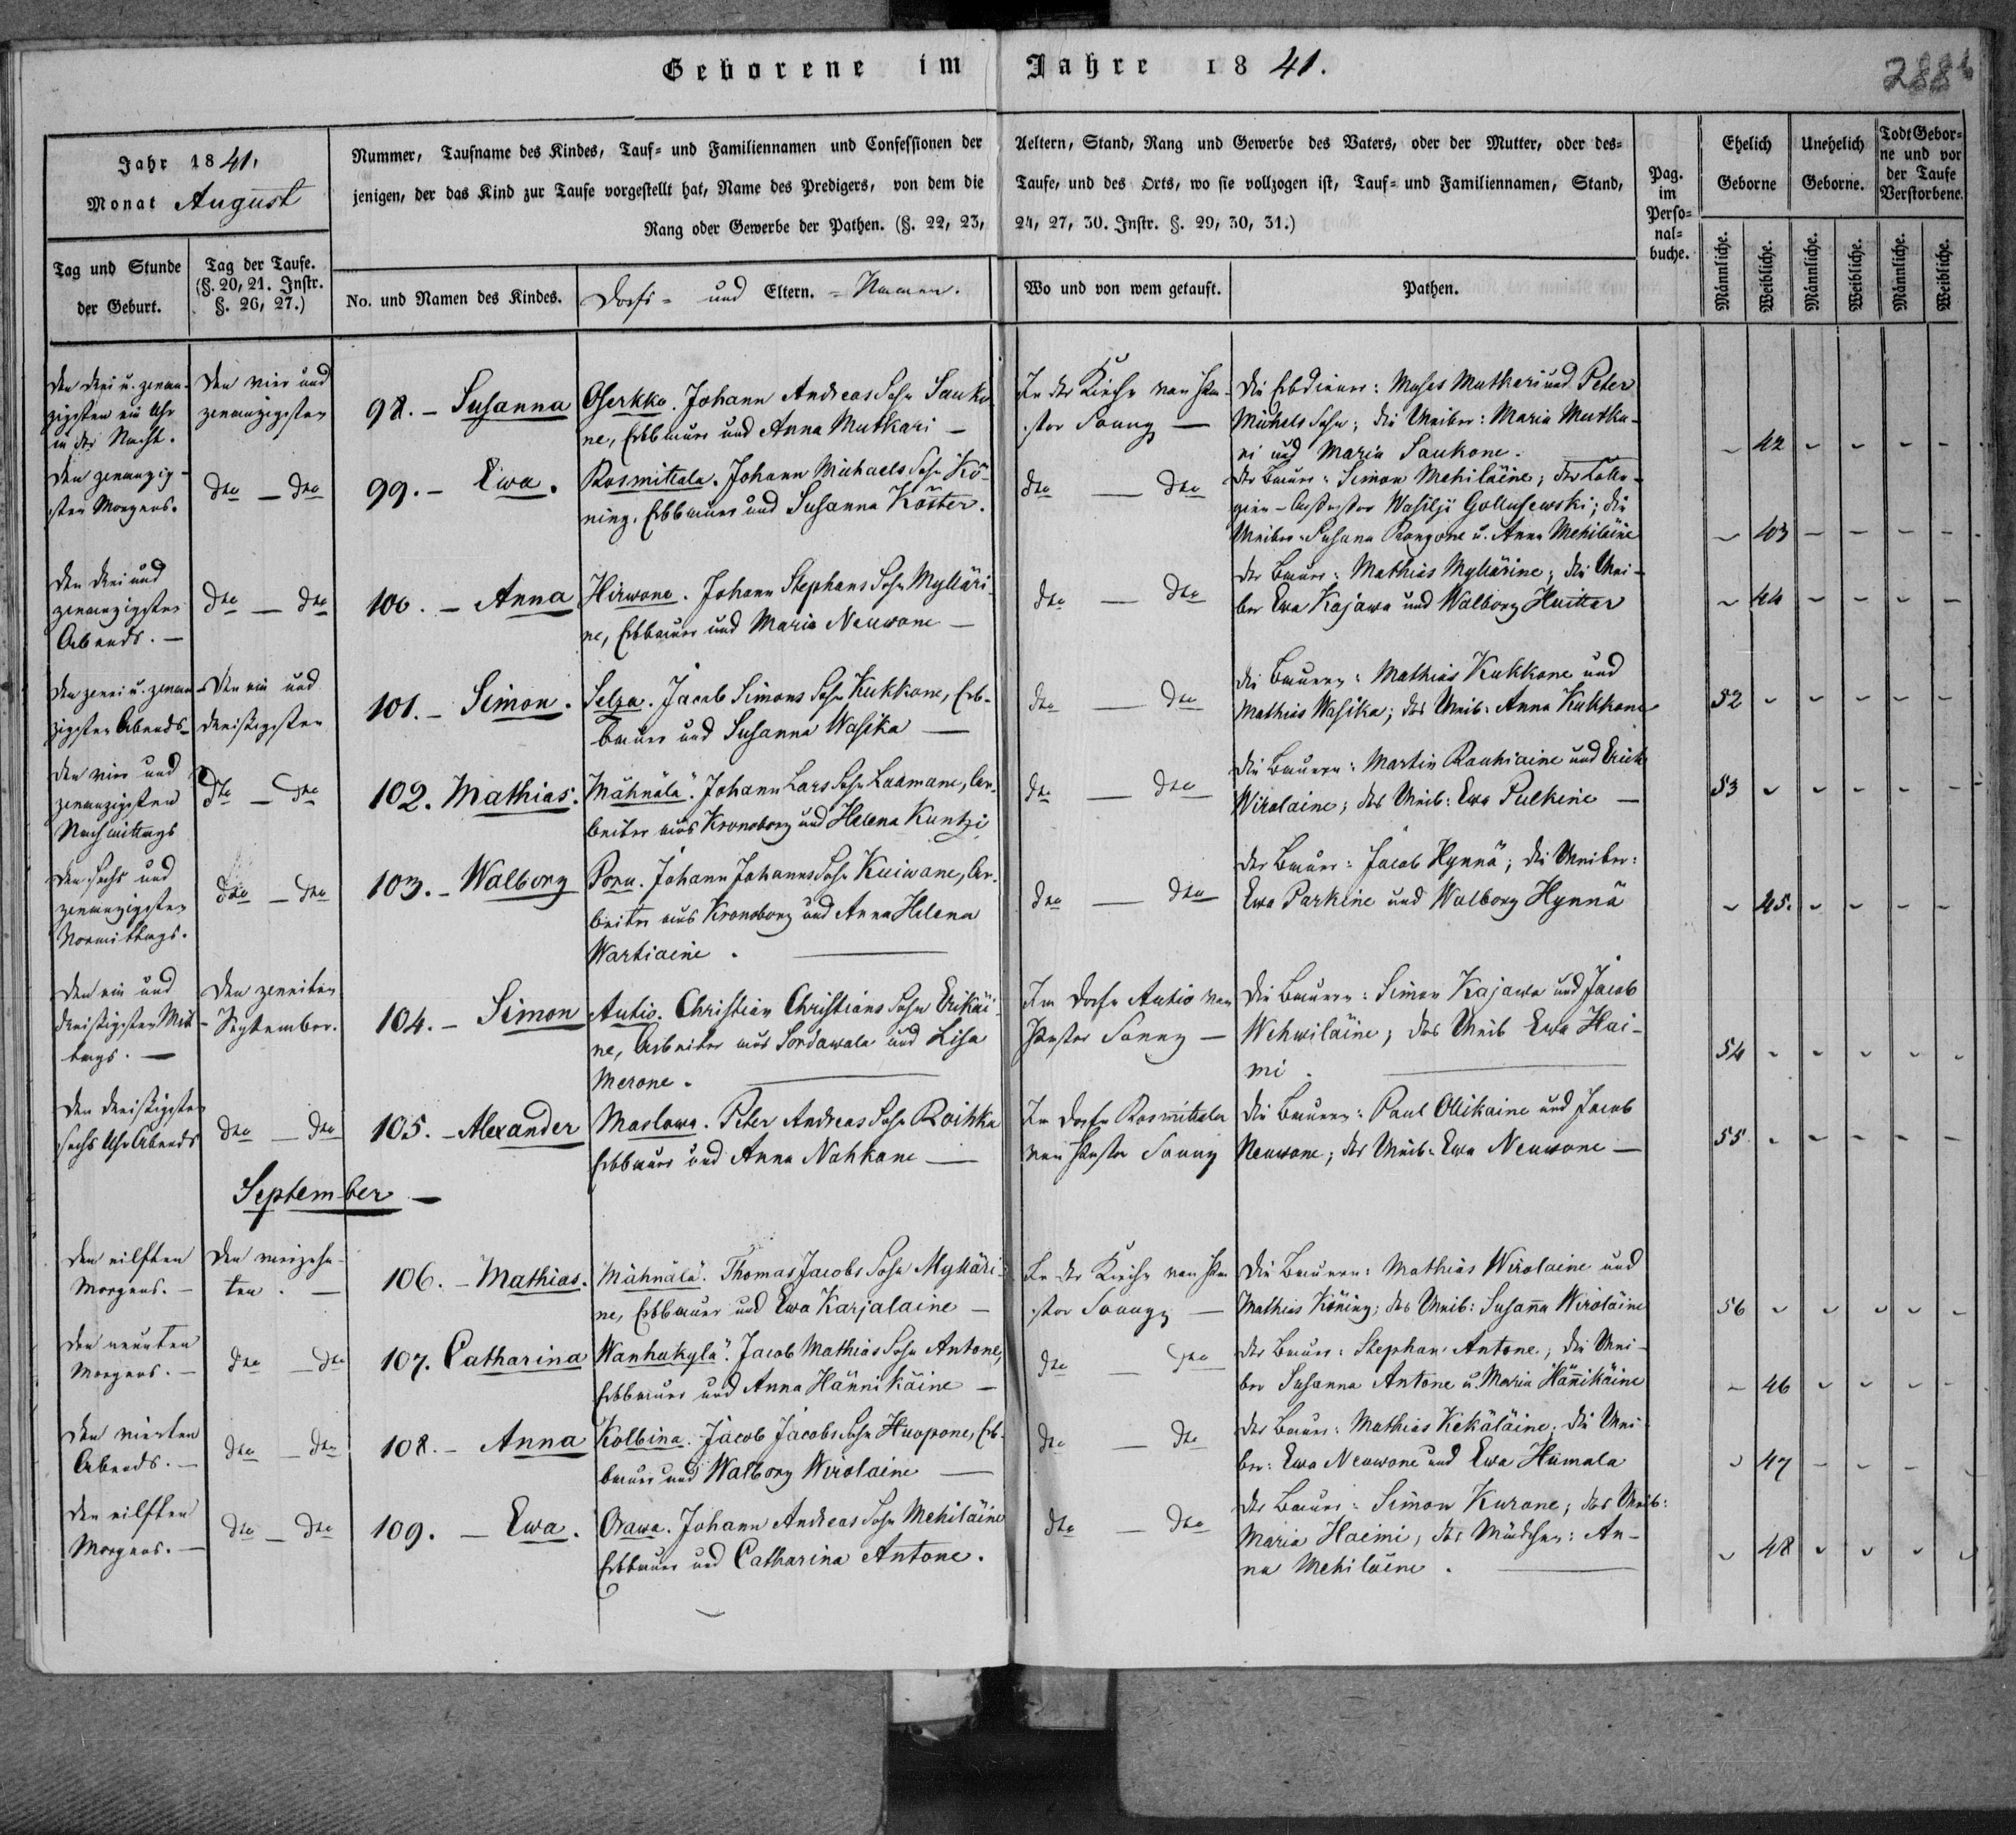 Geborene im Jahre 1841.
288b
Jahr 1841.
Monat August
Nummer, Taufname des Kindes, Tauf- und Familiennamen und Confessionen der Aeltern, Stand, Rang und Gewerbe des Vaters, oder der Mutter, oder des-
jenigen, der das Kind zur Taufe vorgestellt hat, Name des Predigers, von dem die Taufe, und des Orts, wo sie vollzogen ist, Tauf- und Familiennamen, Stand,
Rang oder Gewerbe der Pathen. (§. 22, 23, 24, 27, 30. Instr. §. 29, 30, 31.)
Pag.
im
Perso-
nal-
buche.
Ehelich
Geborne
Unehelich
Geborne.
Todt Gebor-
ne und vor
der Taufe
Verstorbene.
Tag und Stunde
der Geburt.
Tag der Taufe.
(§. 20, 21. Instr.
§. 26, 27.)
No. und Namen des Kindes.
Dorfs- und Eltern.-Namen.
Wo und von wem getauft.
Pathen.
Männliche.
Weibliche.
Männliche.
Weibliche.
Männliche.
Weibliche.
Den drei u. zwan-
zigsten ein Uhr
in der Nacht.
Den vier und
zwanzigsten
98. - Susanna
Oserkko. Johann Andreas Sohn Sauko
ne, Erbbauer und Anna Mutkari -
In der Kirche von Pa-
stor Sonny -
Die Erbdiener: Moses Mutkari und Peter
Michels Sohn; die Weiber: Maria Mutka-
ri und Maria Saukone.
42
Den zwanzig-
sten Morgens.
dto - dto
99. - Ewa.
Rosmittala. Johann Michaels Sohn Kö-
ning, Erbbauer und Susanna Köster.
dto - dto
Der Bauer: Simon Mehiläine; der Colle-
gien-Assessor Wasilji Gollusewski; die
Weiber: Susana Rongone u. Anna Mehiläine
43
Den drei und
zwanzigsten
Abends. -
dto - dto
100. - Anna
Hirwone. Johann Stephans Sohn Mylläri-
ne, Erbbauer und Maria Neuwone -
dto - dto
Der Bauer: Mathias Myllärine; die Wei-
ber Ewa Kajawa und Walborg Huittar
44
Den zwei u. zwan-
zigsten Abends
Den ein und
dreißigsten
101. - Simon.
Selza. Jacob Simons Sohn Kukkone, Erb-
bauer und Susanna Wasika -
dto - dto
Die Bauern: Mathias Kukkone und
Mathias Wasika; das Weib: Anna Kukkone
52
Den vier und
zwanzigsten
Nachmittags
dto - dto
102. Mathias.
Mähnälä. Johann Lars Sohn Laamane, Ar-
beiter aus Kronoborg und Helena Kuntzi
dto - dto
Die Bauern: Martin Rauhiaine und Erich
Wirolaine; das Weib: Ewa Pulkine -
53
Den sechs und
zwanzigsten
Vormittags.
dto - dto
103. - Walborg
Poru. Johann Johanns Sohn Kuiwane, Ar-
beiter aus Kronoborg und Anna Helena
Wartiaine.
dto - dto
Der Bauer: Jacob Hynnä; die Weiber:
Ewa Parkine und Walborg Hynnä
45.
Den ein und
dreißigsten Mit-
tags. -
Den zweiten
September.
104. - Simon
Autio. Christian Christians Sohn Erikäi-
ne, Arbeiter aus Sordawala und Lisa
Merone.
Im Dorfe Autio von
Pastor Sonny -
Die Bauern: Simon Kajawa und Jacob
Wehwiläine; das Weib Ewa Hai-
mi.
54
Den dreißigsten
sechs Uhr Abends
dto - dto
105. - Alexander
Maslowa. Peter Andreas Sohn Roihka
Erbbauer und Anna Nahkane -
Im Dorfe Rosmittala
von Pastor Sonny
Die Bauern: Paul Ollikaine und Jacob
Neuwone; das Weib: Ewa Neuwone -
55
September -
Den eilften
Morgens. -
Den vierzehn-
ten. -
106. - Mathias.
Mähnälä. Thomas Jacobs Sohn Mylläri-
ne, Erbbauer und Ewa Karjalaine -
In der Kirche von Pa-
stor Sonny -
Die Bauern: Mathias Wirolaine und
Mathias Köning; das Weib: Susanna Wirolaine
56
Den neunten
Morgens. -
dto - dto
107. Catharina
Wanhakylä. Jacob Mathias Sohn Antone,
Erbbauer und Anna Hännikäine -
dto - dto
Der Bauer: Stephan Antone; die Wei-
ber Susanna Antone u. Maria Hännikäine
46
Den vierten
Abends. -
dto - dto
108. - Anna
Kolbina. Jacob Jacobs Sohn Huopone, Erb-
bauer und Walborg Wirolaine -
dto - dto
Der Bauer: Mathias Kekäläine; die Wei-
ber: Ewa Neuwone und Ewa Himala
47
Den eilften
Morgens. -
dto - dto
109. - Ewa.
Orawa. Johann Andreas Sohn Mehiläine
Erbbauer und Catharina Antone.
dto - dto
Der Bauer: Simon Kurone; das Weib:
Maria Haimi; das Mädchen: An-
na Mehiläine.
48